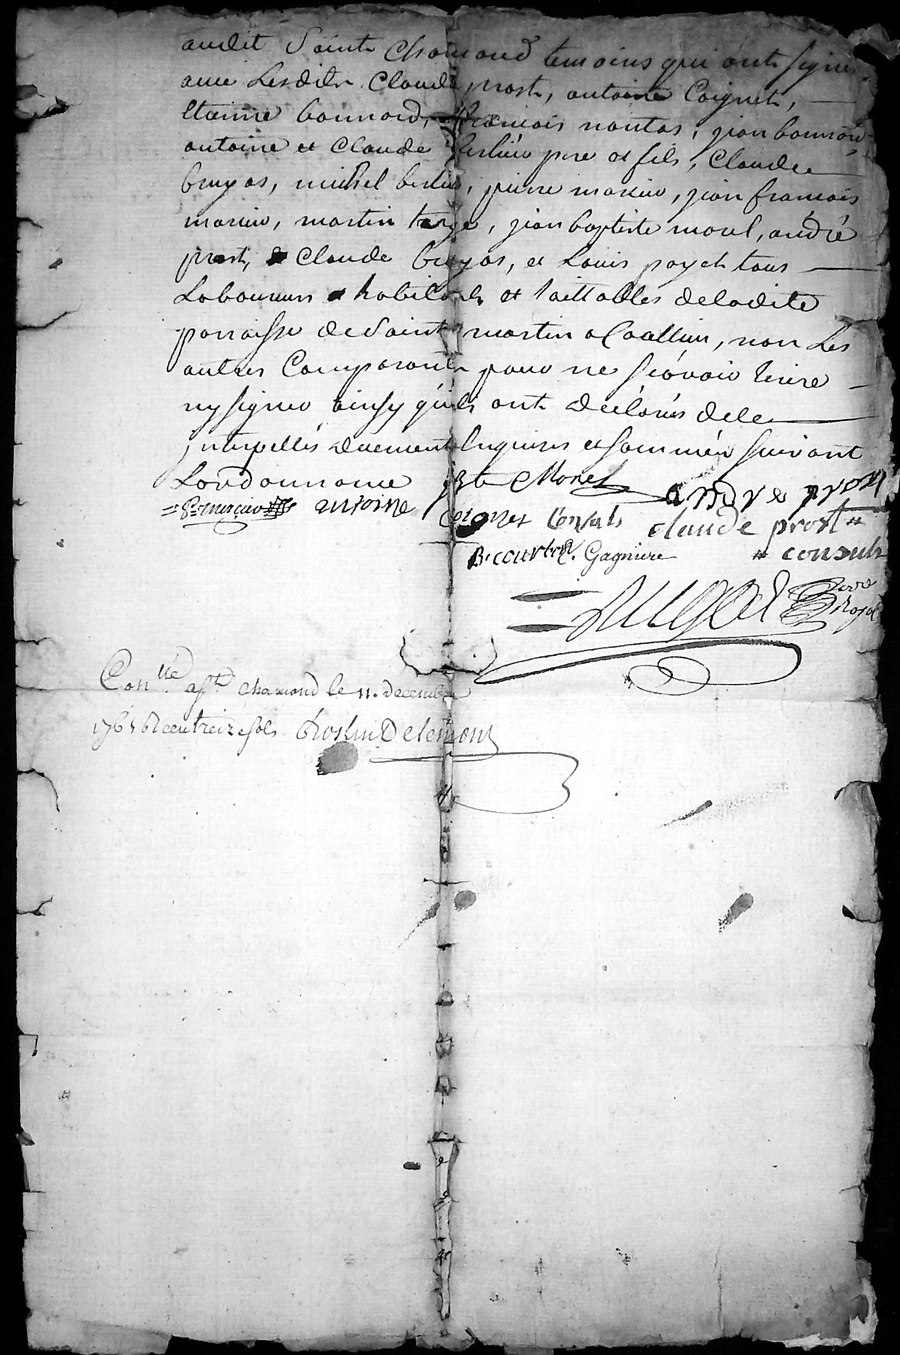 audit Saint Chamond temoins qui ont signé
avec Lesdits Claude prost, antoine Coignet,
Etienne bonnard, françois nantas, jean bonnard
antoine et Claude berlier pere et fils, Claude
bruyas, michel berlier, pierre marieu, jean françois
marieu, martin targe, jean baptiste moul, andré
prost, Claude bruyas, et Louis payet tous
Laboureurs habitants et taillables deladite
parroisse de Saint martin a Coallieu, non Les
autres Comparants pour ne sçavoir Ecrire
ny signer ainsy qu'ils ont déclarés dele
jnterpellés duement Enquis et sommés suivant
Lordonnance
andre pron
antoine
Consals
claude prost
consuls
Gagniere
Con.llé a St. chamond le 11. decembre
1765